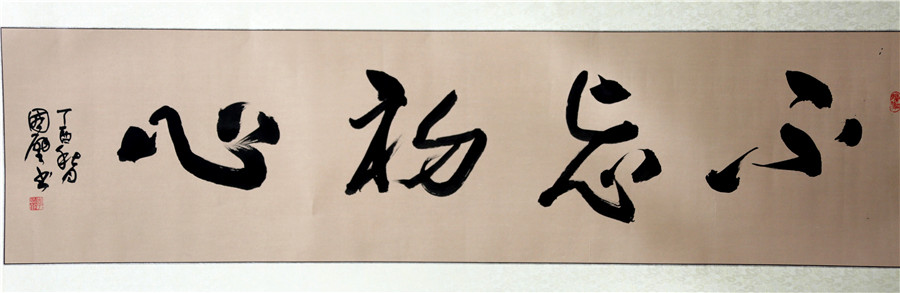 不忘初心
丁酉秋月
國璧书